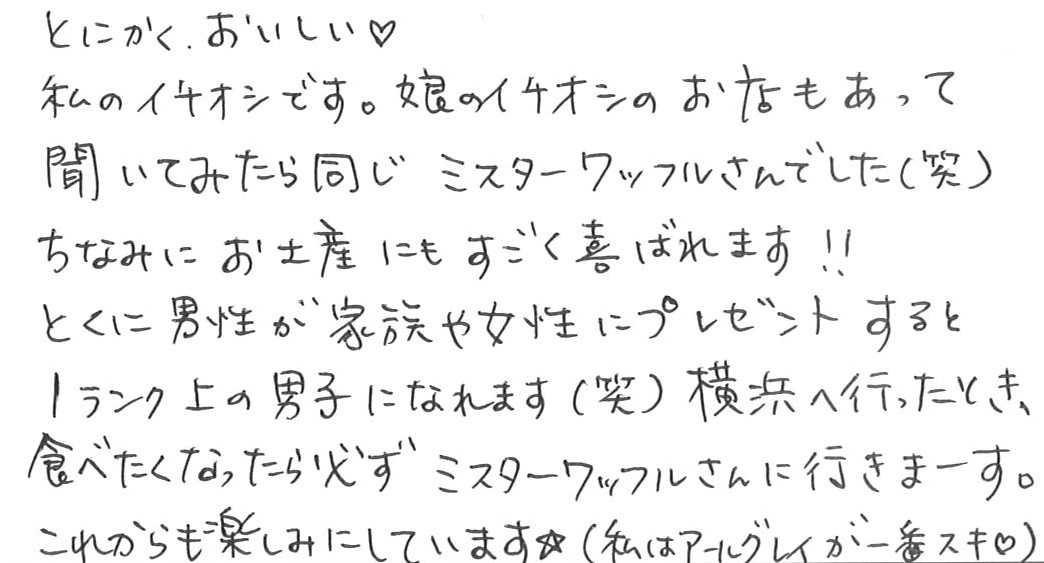 とにかく、おいしい♡
私のイチオシです。娘のイチオシのお店もあって
聞いてみたら同じ ミスターワッフルさんでした(笑)
ちなみに お土産にも すごく喜ばれます!!
とくに男性が家族や女性にプレゼントすると
1ランク上の男子になれます(笑) 横浜へ行ったとき、
食べたくなったら必ず ミスターワッフルさんに行きまーす。
これからも楽しみにしています☆(私はアールグレイが一番スキ♡)